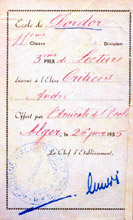 Ecole de Dordor
11ème
Classe Division
3ème PRIX de Lecture
décerné à l'Elève
André
Offert par l'Amicale de l'Ecole
Alger, le 26 juin 1935
Le Chef d'Etablissement,